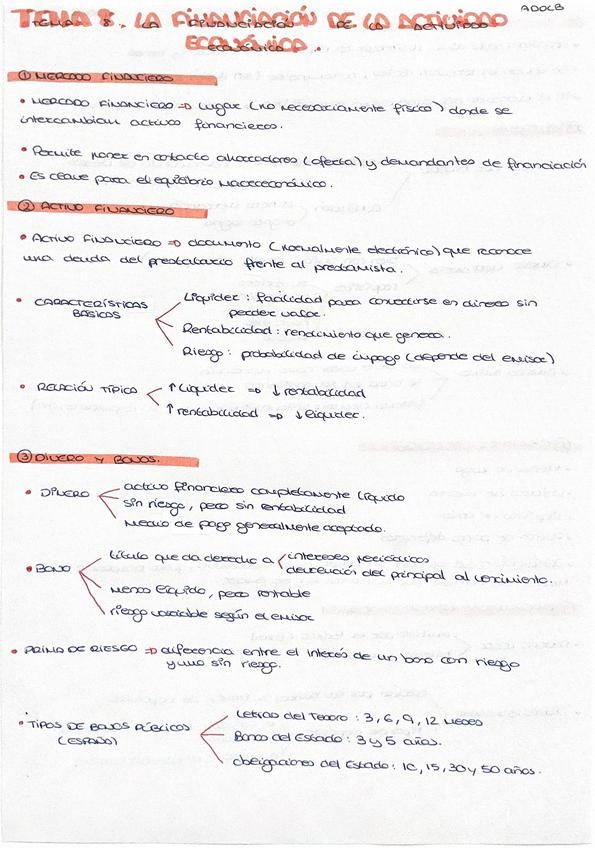 ADOLB
TEMA 8. LA FINANCIACIÓN DE LA ACTIVIDAD
ECONÓMICA.
① MERCADO FINANCIERO
• MERCADO FINANCIERO => lugar (no necesariamente físico) donde se
intercambian activos financieros.
• Permite poner en contacto ahorradores (oferta) y demandantes de financiación
• Es clave para el equilibrio macroeconómico.
② ACTIVO FINANCIERO
• ACTIVO FINANCIERO => documento (normalmente electrónico) que reconoce
una deuda del prestatario frente al prestamista.
• CARACTERÍSTICAS BÁSICAS
Liquidez: facilidad para convertirse en dinero sin
perder valor.
Rentabilidad: rendimiento que genera.
Riesgo: probabilidad de impago (depende del emisor)
• RELACIÓN TÍPICA
↑ liquidez => ↓ rentabilidad
↑ rentabilidad => ↓ liquidez.
③ DINERO Y BONOS.
• DINERO
activo financiero completamente líquido
sin riesgo, pero sin rentabilidad
Medio de pago generalmente aceptado.
• BONO
título que da derecho a
intereses periódicos
devolución del principal al vencimiento.
menos líquido, pero rentable
riesgo variable según el emisor
• PRIMA DE RIESGO => diferencia entre el interés de un bono con riesgo
y uno sin riesgo.
• TIPOS DE BONOS PÚBLICOS
(ESPAÑA)
Letras del Tesoro: 3, 6, 9, 12 meses
Bonos del Estado: 3 y 5 años.
Obligaciones del Estado: 10, 15, 30 y 50 años.